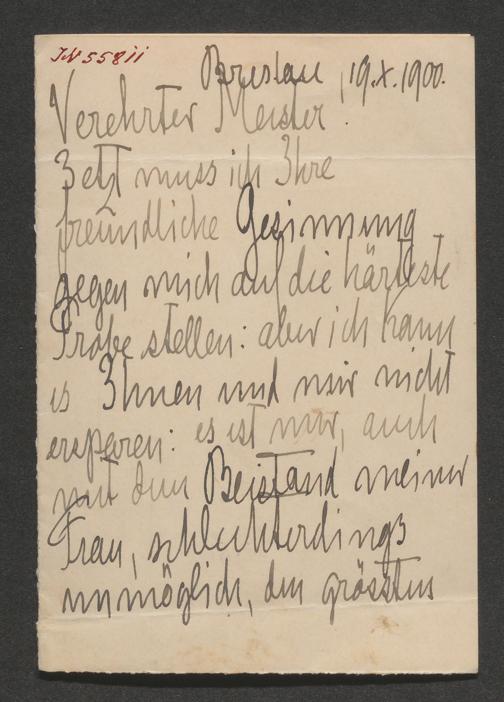 IN 55811
Breslau, 19.X.1900.
Verehrter Meister!
Jetzt muss ich Ihre
freundliche Gesinnung
gegen mich auf die härteste
Probe stellen: aber ich kann
es Ihnen und mir nicht
ersparen: es ist mir, auch
mit dem Beistand meiner
Frau, schlechterdings
unmöglich, den grössten